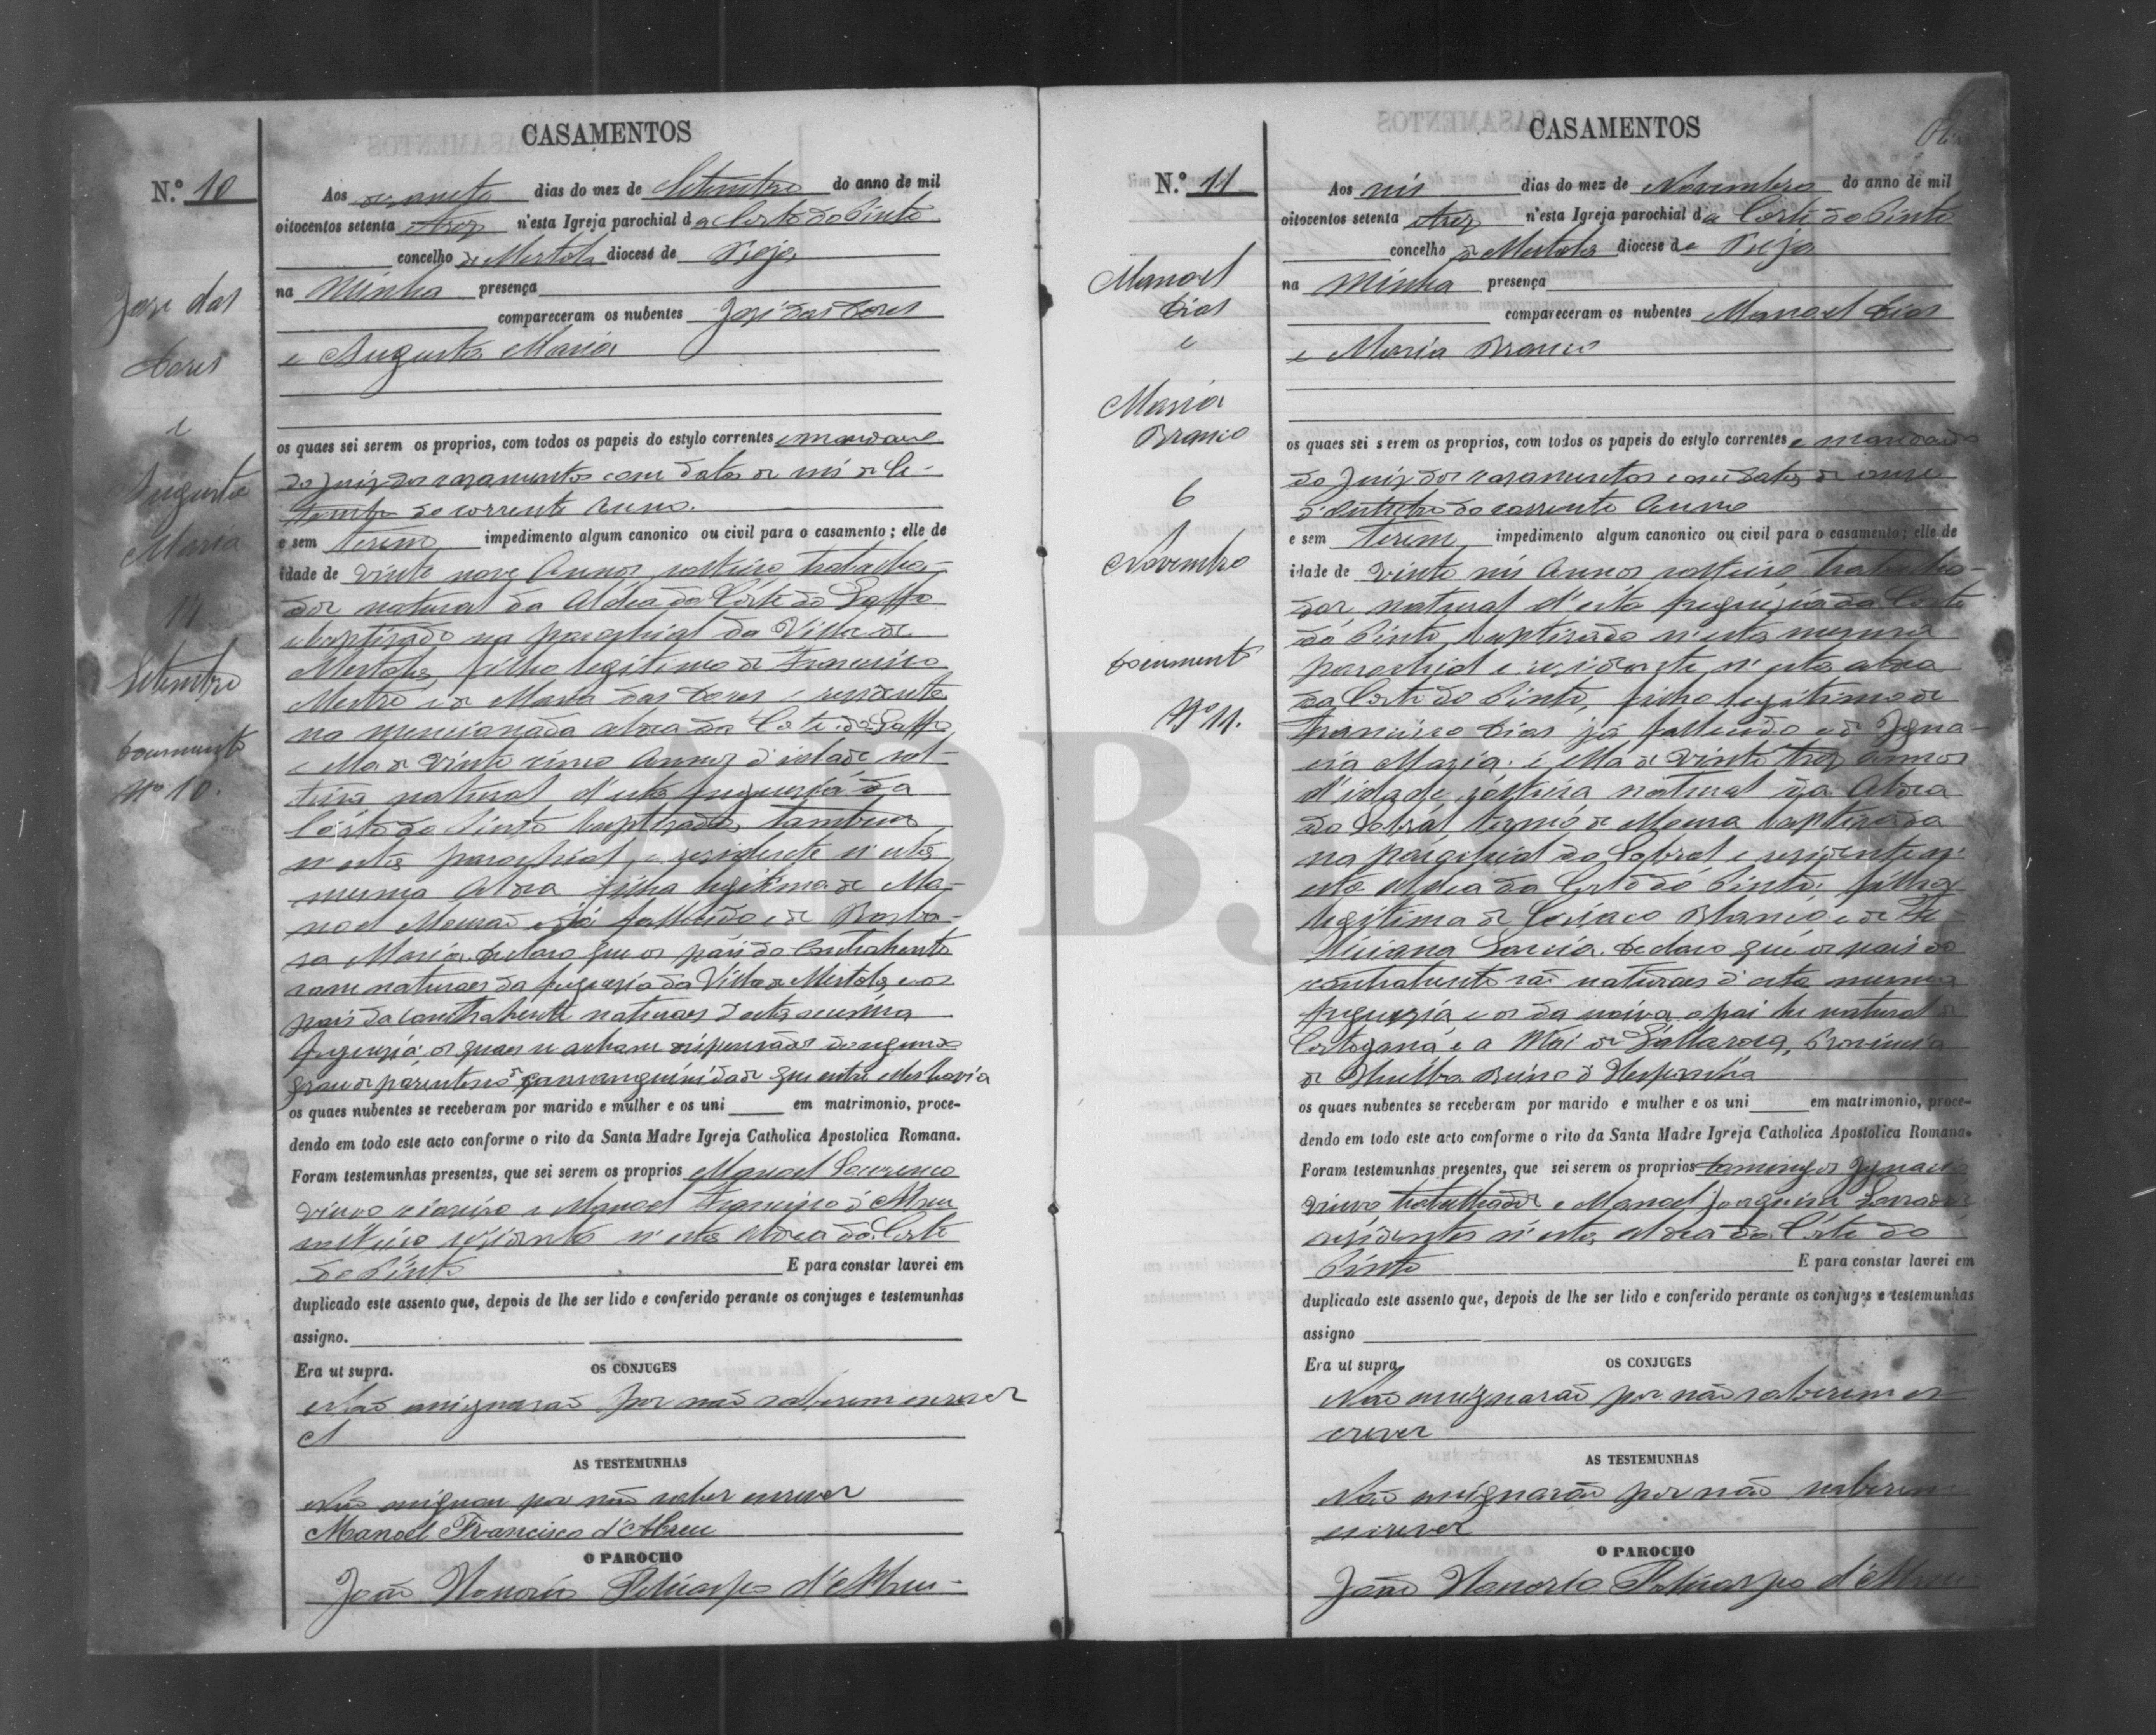 CASAMENTOS
N.º 10
Aos desasete dias do mez de Setembro do anno de mil
oitocentos setenta etrez n'esta Igreja parochial da Corte do Pinto
concelho de Mertola diocese de Beja
na Minha presença
compareceram os nubentes José das Dores
e Augusta Maria
os quaes sei serem os proprios, com todos os papeis do estylo correntes e mandado
do Juiz dos casamentos com data de seis de Se-
tembro do corrente Anno.
e sem terem impedimento algum canonico ou civil para o casamento; elle de
idade de vinte nove Annos solteiro trabalha-
dor natural da Aldea da Corte do Gaffo
ebaptizado na parochial da Villa de
Mertola, filho legitimo de Francisco
Mestre e de Maria das Dores e residente
na mencionada aldea da Corte do Gaffo
e ella de vinte cinco Annos d'idade sol-
teira natural d'esta freguezia da
Corte do Pinto baptizada tambem
n'esta parochial, e rezidente n'esta
mesma Aldea filha legitima de Ma-
noel já fallecido e de Barba-
ra Maria. Declaro que os pais do Contrahente
sam naturaes da freguezia da Villa de Mertola, e os
pais da Contrahente naturaes d'esta mesma
freguezia, os quaes se acham dispensados do segundo
grau de parentesco de consanguinidade que entre elles havia
os quaes nubentes se receberam por marido e mulher e os uni em matrimonio, proce-
dendo em todo este acto conforme o rito da Santa Madre Igreja Catholica Apostolica Romana.
Foram testemunhas presentes, que sei serem os proprios Manoel Lourenco
viuvo e Manoel Francisco d'Abreu
solteiro rezidentes n'esta Aldea da Corte
do Pinto E para constar lavrei em
duplicado este assento que, depois de lhe ser lido e conferido perante os conjuges e testemunhas
assigno.
Era ut supra.
OS CONJUGES
Não assignarão por não saberem escrever
AS TESTEMUNHAS
Não assignou por não saber escrever
Manoel Francisco d'Abreu
O PAROCHO
João Honorio Policarpo d'Abreu
José das
Dores
e
Augusta
Maria
Setembro
Documento
Nº 10.
CASAMENTOS
N.º 11
Aos seis dias do mez de Novembro do anno de mil
oitocentos setenta etrez n'esta Igreja parochial da Corte do Pinto
concelho de Mertola diocese de Beja
na Minha presença
compareceram os nubentes Manoel Dias
e Maria Branco
os quaes sei serem os proprios, com todos os papeis do estylo correntes e mandado
do Juiz dos casamentos com data de onze
d'Outubro do corrente Anno
e sem terem impedimento algum canonico ou civil para o casamento; elle de
idade de vinte seis Annos solteiro trabalha-
dor, natural d'esta freguezia da Corte
do Pinto, baptizado n'esta mesma
parochial e rezidente n'esta aldea
da Corte do Pinto, filho legitimo de
Francisco Dias já fallecido e de Igna-
cia Maria: e ella de vinte trez annos
d'idade, solteira natural da Aldea
do Sobral termo de Moura baptizada
na parochial do Sobral e rezidente n'
esta Aldea da Corte do Pinto: filha
legitima de Branco e de Fe-
liciana Garcia. Declaro que os pais do
contrahente são naturaes d'esta mesma
freguezia e os da noiva o pai he natural de
Cortegana e a Mãi de Gallaroza, Provincia
de Huelba Reino d'Hespanha
os quaes nubentes se receberam por marido e mulher e os uni em matrimonio, proce-
dendo em todo este acto conforme o rito da Santa Madre Igreja Catholica Apostolica Romana.
Foram testemunhas presentes, que sei serem os proprios Domingos Ignacio
viuvo, trabalhador e Manoel Joaquim Lavrador
rezidentes n'esta aldea da Corte do
Pinto E para constar lavrei em
duplicado este assento que, depois de lhe ser lido e conferido perante os conjuges e testemunhas
assigno
Era ut supra
OS CONJUGES
Não assignarão por não saberem es
crever
AS TESTEMUNHAS
Não assignarão por não saberem
escrever
O PAROCHO
João Honorio Policarpo d'Abreu
Manoel
Dias
e
Maria
Branco
6
Novembro
Documento
Nº 11.
ADBJA